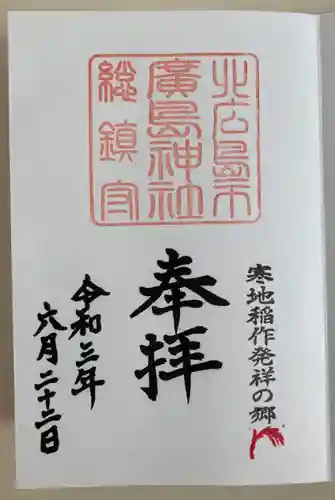 北広島市
廣島神社
総鎮守
寒地稲作発祥の郷
奉拝
令和三年
六月二十二日